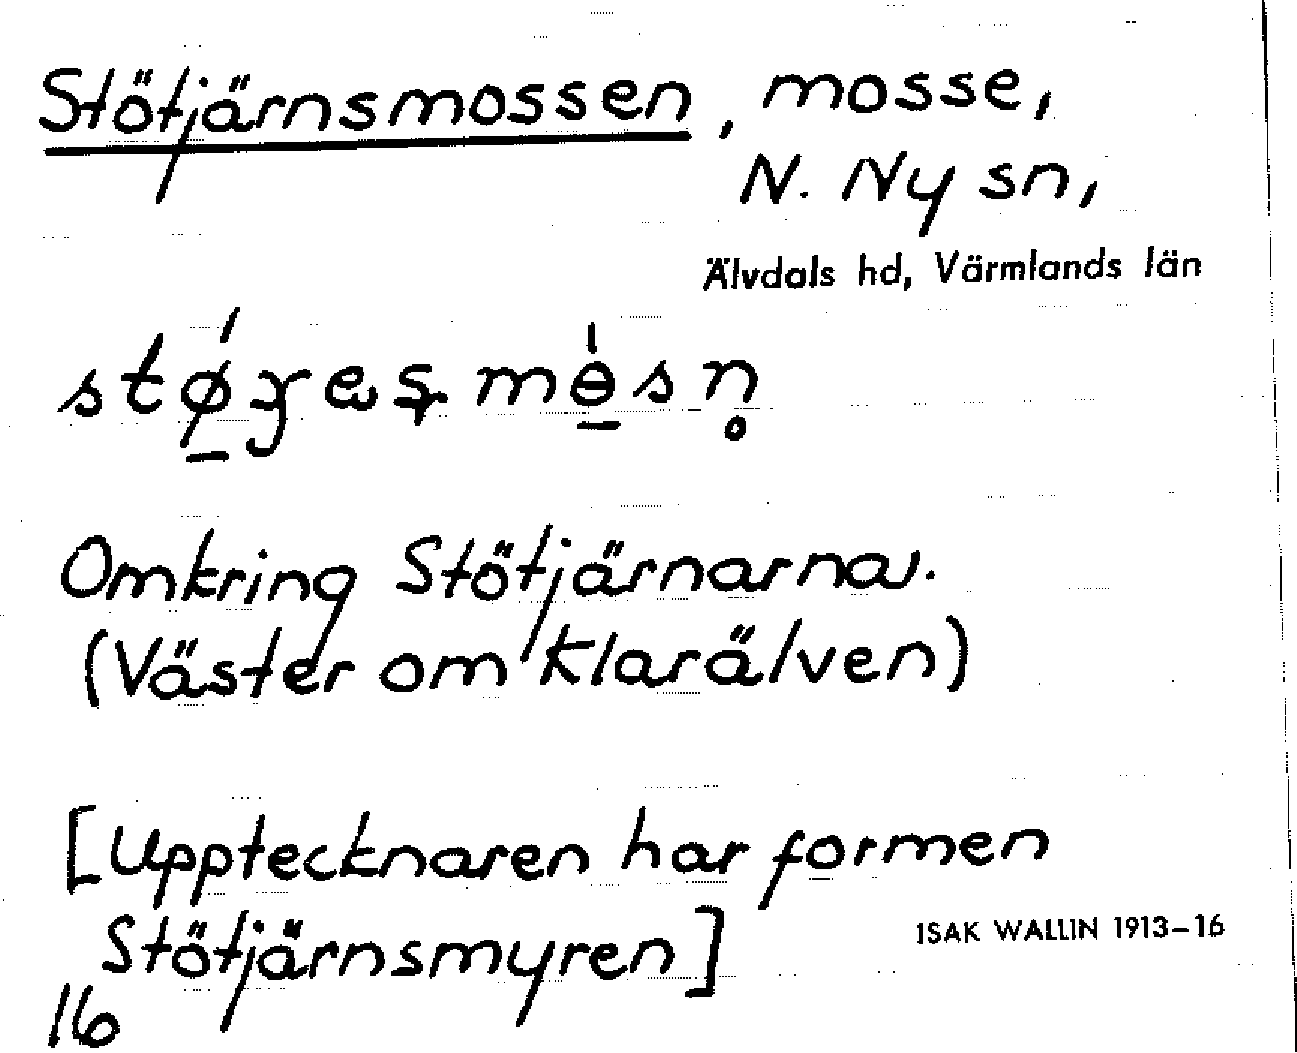 Stötjärnsmossen, mosse,
N. Ny sn,
Älvdals hd, Värmlands län
Omkring Stötjärnarna.
(Väster om Klarälven)
[Upptecknaren har formen
Stötjärnsmyren]
ISAK WALLIN 1913-16
16